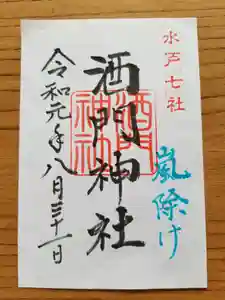 水戸七社
嵐除け
酒門神社
酒門
神社
令和元年八月三十一日